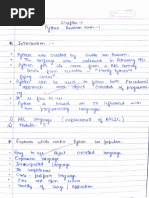 Chapter-1
Python Revision tour-1
Introduction :-
Python was created by Guido Van Rossum.
The language was released in February 1991
Python got its name from a BBC comedy
series from seventies - "Monty Python's
Flying
Python can be used to follow both Procedural
approach and Object Oriented of programming
Python is based on or influenced with
two programming languages
ABC language [replacement of BASIC]
Modula-3
Features which make Python so popular
Easy to use Object oriented language
Expressive language
Interpreted Language
Its completeness
Cross-platform language
Free and Open source
Variety of Usage / Application